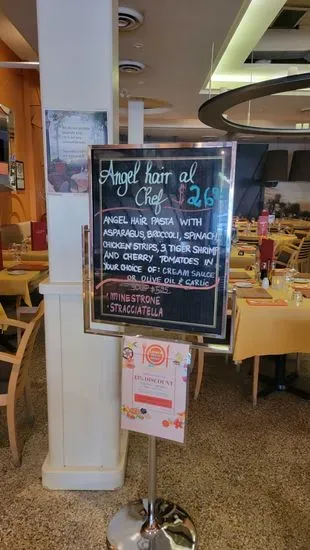 Angel hair al
Chef $26
ANGEL HAIR PASTA WITH
ASPARAGUS, BROCCOLI, SPINACH,
CHICKEN STRIPS, 3 TIGER SHRIMP
AND CHERRY TOMATOES IN
YOUR CHOICE OF: CREAM SAUCE
OR OLIVE OIL & GARLIC
SOUP
MINESTRONE
STRACCIATELLA
DISCOUNT